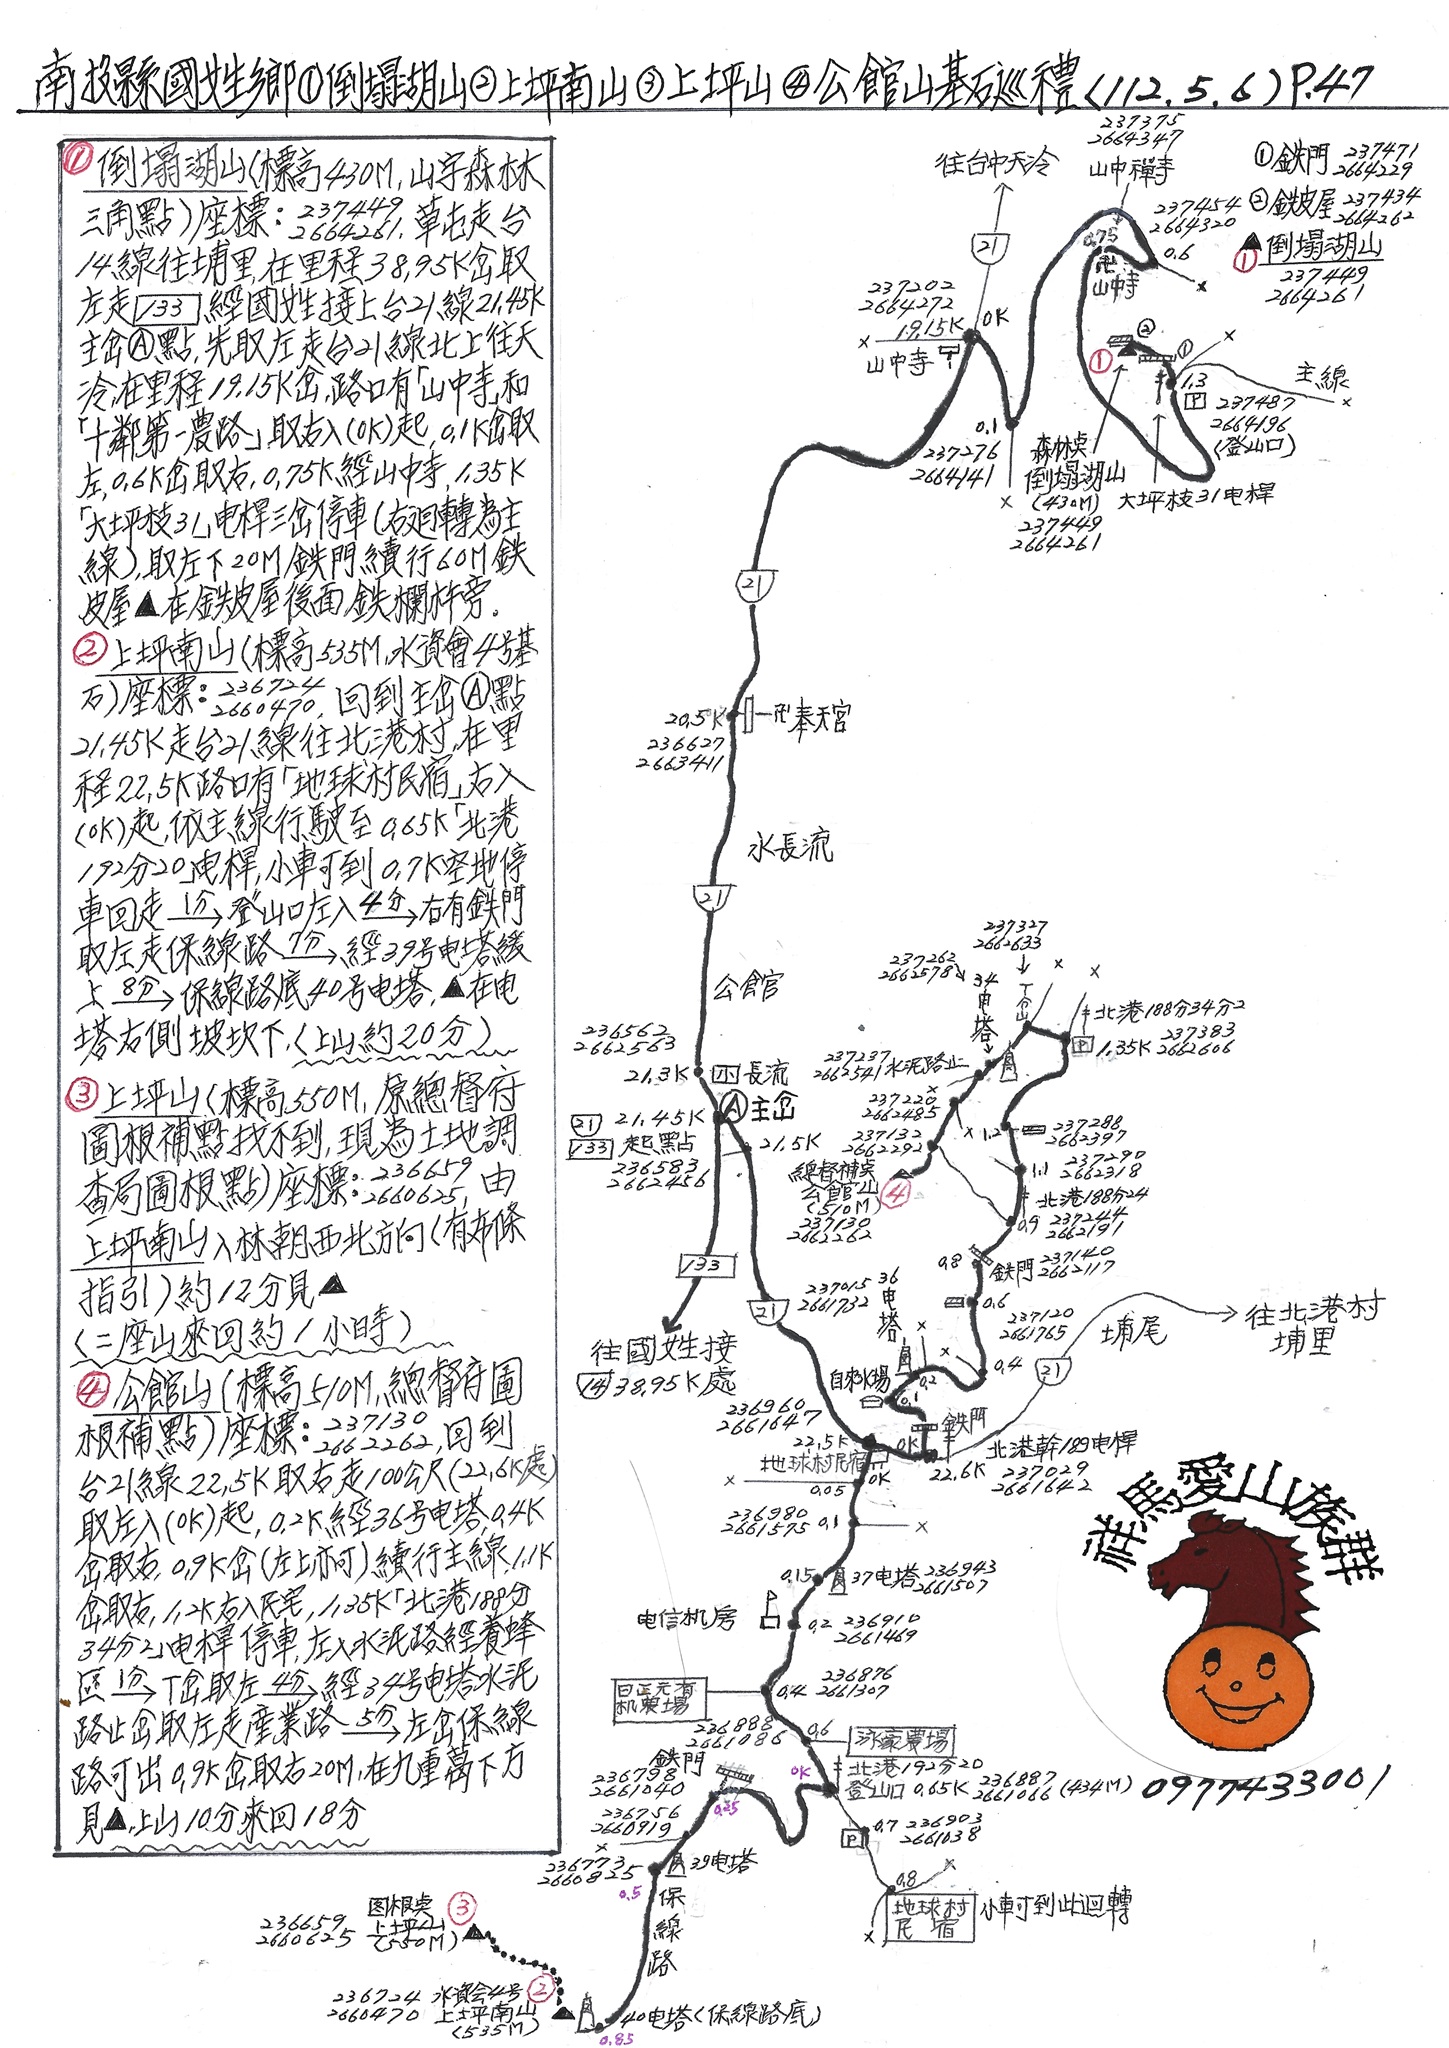 南投縣國姓鄉①倒塌湖山②上坪南山③上坪山④公館山基石巡禮(112.5.6)P.47
① 倒塌湖山(標高430M,山字森林
三角點)座標:237449
2664261.草屯走台
14線往埔里,在里程38,95K岔取
左走133經國姓接上台21線21,45K
主岔Ⓐ點,先取左走台21線北上往天
冷,在里程19.15K岔,路口有「山中寺」和
「十鄰第一農路」取右入(0K)起,0.1K岔取
左,0,6K岔取右,0,75K經山中寺,1,35K
「大坪枝31」电桿三岔停車(右迴轉為主
線),取左下20M鉄門續行60M鉄
皮屋▲在鉄皮屋後面鉄欄杆旁.
② 上坪南山(標高535M,水資會4号基
石)座標:236724
2660470,回到主岔Ⓐ點
21,45K走台21線往北港村,在里
程22,5K路口有「地球村民宿」右入
(0K)起,依主線行駛至0,65K「北港
192分20」电桿,小車可到0,7K空地停
車回走1分→登山口左入4分→右有鉄門
取左走保線路7分→經39号电塔緩
上8分→保線路底40号电塔,▲在电
塔右側坡坎下,(上山約20分)
③ 上坪山(標高550M,原總督府
圖根補點找不到,現為土地調
查局圖根點)座標:236659
2660625,由
上坪南山入林朝西北方向(有布條
指引)約12分見▲
(二座山來回約1小時)
④ 公館山(標高510M,總督府圖
根補點)座標:237130
2662262,回到
台21線22,5K取右走100公尺(22,6K處)
取左入(0K)起,0,2K經36号电塔,0,4K
岔取右,0,9K岔(左上亦可)續行主線,1,1K
岔取右,1,2K右入民宅,1,35K「北港188分
34分2」电桿停車,左入水泥路經養蜂
區1分→T岔取左4分→經34号电塔水泥
路止岔取左走產業路5分→左岔保線
路可出0,9K岔取右20M,在九重葛下方
見▲,上山10分來回18分
往台中天冷
21
237375
2664347
山中禪寺
①鉄門 237471
2664229
②鉄皮屋 237434
2664262
▲倒塌湖山
① 237449
2664261
237454
2664320
0.6
0,75
卍
山中寺
237202
2664272
19.15K
0K
山中寺
0.1
237276
2664141
森林点
倒塌湖山
(430M)
237449
2664261
①
②
①
1,3
P
237487
2664196
(登山口)
主線
大坪枝31电桿
21
20,5K
236627
2663411
卍奉天宮
水長流
21
公館
236562
2662563
21.3K
小 長流
Ⓐ主岔
21 21.45K
133 起點
236583
2662456
21.5K
133
往國姓接
14 38,95K處
21
237327
2662633
237262
2662578
34
电
塔
237237
2662541
水泥路止
237220
2662485
237132
2662292
總督補点
公館山
(510M)
237130
2662262
④
北港188分34分2
P 1.35K 237383
2662606
1.2
237288
2662397
237290
1.1 2662318
北港188分24
0,9 237244
2662191
0,8 鉄門 237140
2662117
0.6
237120
2661765
0,4
237015
2661732
36
电
塔
自來水場
0,2
0,1
鉄門
0K
埔尾
21
往北港村
埔里
236960
2661647
22,5K
地球村民宿
0K
0,05
22,6K
北港幹189电桿
237029
2661642
236980
2661575 0,1
0,15 37电塔 236943
2661507
电信机房
0,2 236910
2661469
日正元有
机農場
0,4 236876
2661307
236888
2661086
0,6
泳豪農場
鉄門
236798
2661040
0,25
0K
北港192分20
登山口 0,65K 236887
2661066 (434M)
236756
2660919
P 0,7 236903
2661038
236773
2660825
39电塔
0.5
保
線
路
0,8
地球村
民宿
小車可到此迴轉
图根点 ③
236659 上坪山
2660625 (550M)
236724 水資会4号 ②
2660470 上坪南山
(535M)
40电塔(保線路底)
0.85
祥馬愛山族群
0977433001